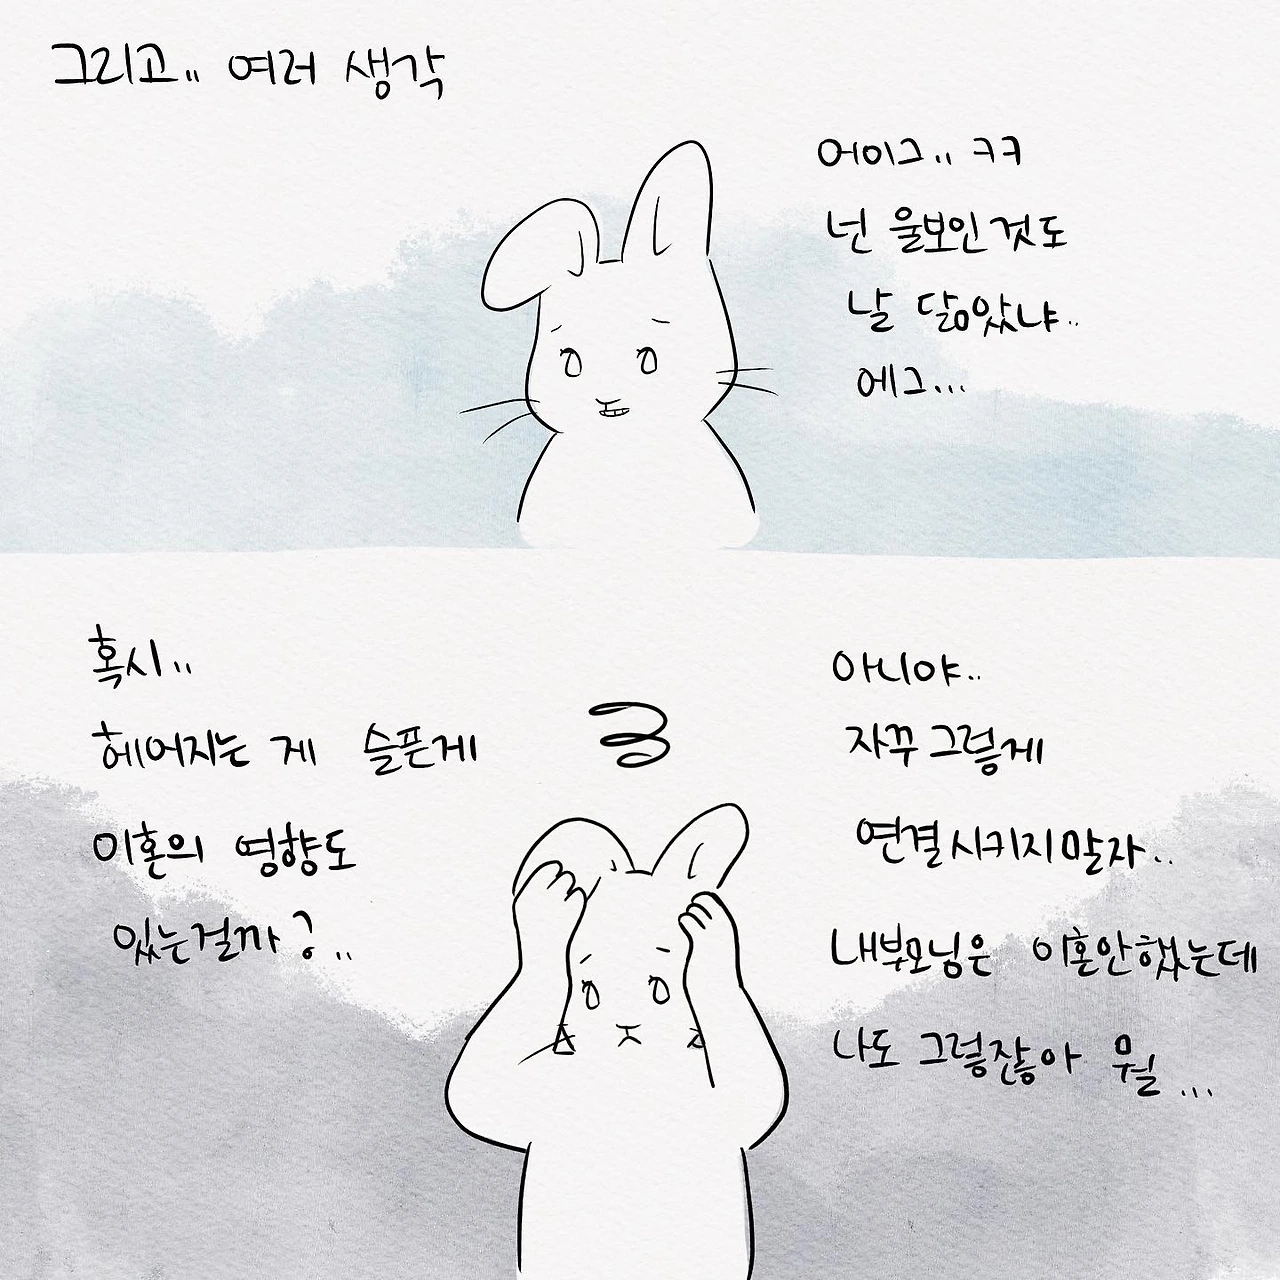 그리고.. 여러 생각
어이그.. ㅋㅋ
넌 울보인 것도
날 닮았냐..
에그...
혹시..
헤어지는 게 슬픈게
이혼의 영향도
있는걸까?..
아니야..
자꾸 그렇게
연결시키지말자..
내부모님은 이혼안했는데
나도 그렇잖아 뭘...